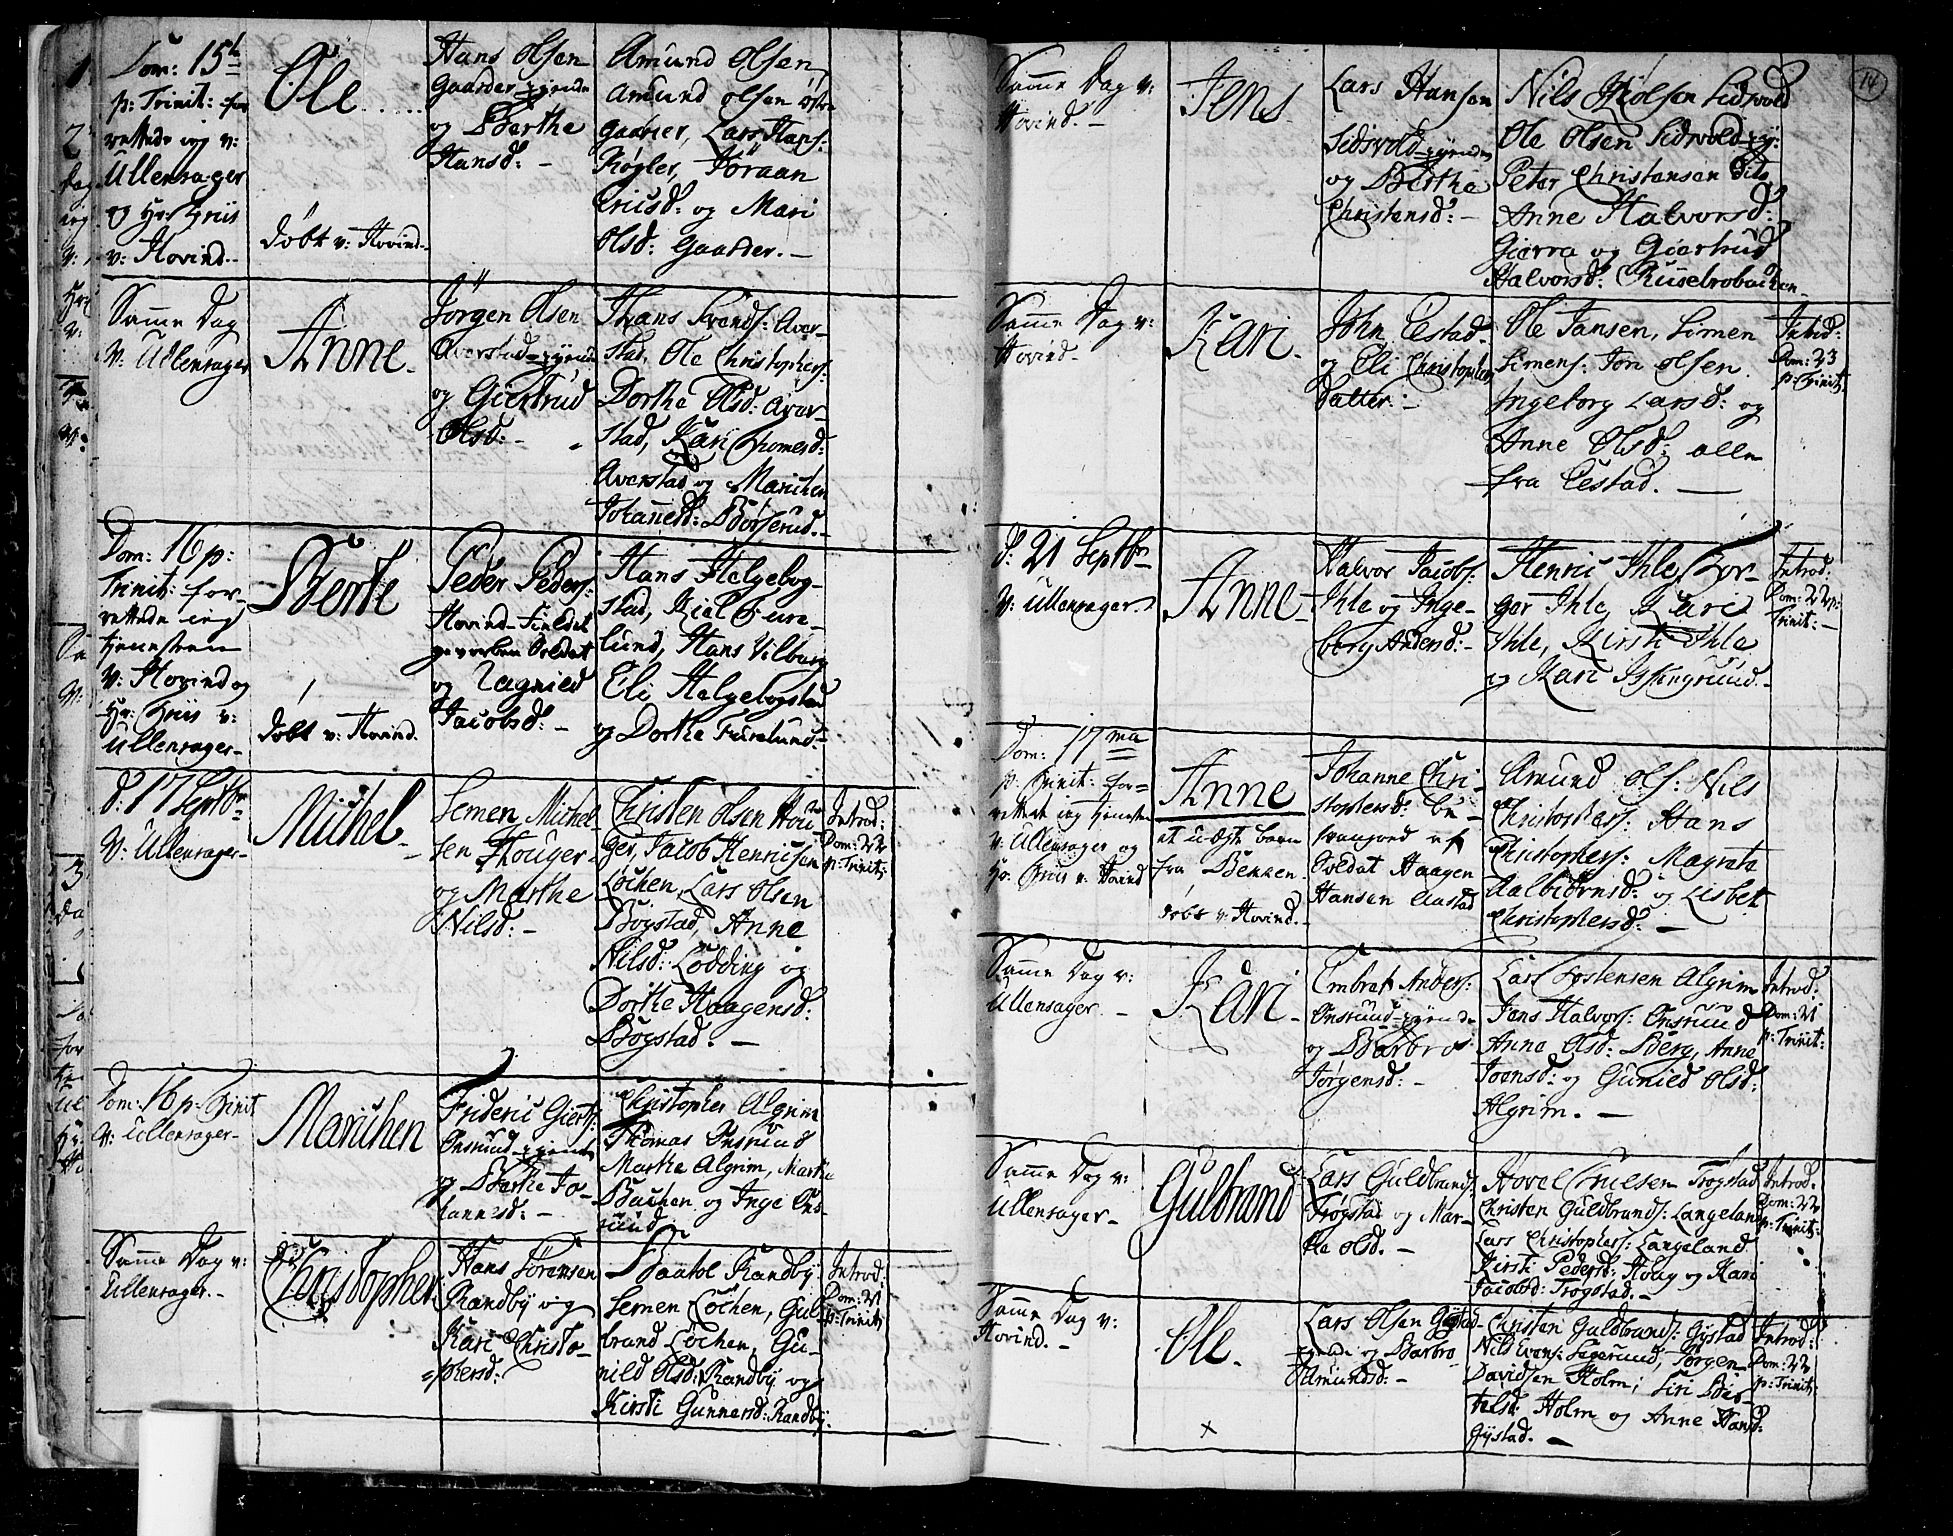 Dom: 15de
p: Trinit: for
rettede ieg v:
Ullensager
og Hr: Friis
v: Hovind.
Ole
døbt v: Hovind.
Hans Olsen
Gaarder
og Berthe
Hansd: -
Amund Olsen
Amund Olsen
Gaarder, Lars Hans:
Kogler, Jöraan
Ericsd: og Mari
Olsd: Gaarder. -
Samme Dag
v: Ullensager
Anne.
Jörgen Olsen
Averstad
og Giertrud
Olsd: -
Hans Svends: Aver-
stad, Ole Christophers:
Dorthe Olsd: Aver-
stad, Kari Thomesd:
Averstad og Marichen
Johanesd: Børserud.
Dom: 16 p:
Trinit: for-
rettede ieg
tjenesten
v: Hovind og
Hr: Friis v:
Ullensager
Berte
døbt v: Hovind.
Peder Peders:
Hovind
gevorben Soldat
og Ragnild
Jacobsd: -
Hans Helgebog-
stad, Kiel Fure-
lund, Hans Vilberg
Eli Helgebogstad
og Dorthe Furulund.
d: 17 Septbr
v: Ullensager
Michel
Semen Michel-
sen Houger
og Marthe
Nilsd: -
Christen Olsen Hou-
ger, Jacob Henricsen
Løchen, Lars Olsen
Bogstad, Anne
Nilsd: Lødding og
Dorthe Haagensd:
Bogstad. -
Introd:
Dom: 22
p: Trinit:
Dom: 16 p: Trinit
v: Ullensager
Marichen
Frideric Gierts:
Onsrud
og Berthe Jo-
hannesd: -
Christopher Algrim
Thomas Onsrund
Marthe Algrim, Marthe
Bachen og Inge Ons-
rund
Samme Dag v:
Ullensager.
Christopher
Hans Sörensen
Randby og
Kari Christo-
phersd:
Baatol Randby
Semen Løchen, Gul-
brand Løchen, Gu-
nild Olsd: Randby og
Kirsti Gunnersd: Randby.
Introd:
Dom: 21
p: Trinit
14
Samme Dag v:
Hovind. -
Jens
Lars Hansen
Sidsvold
og Berthe
Christensd: -
Nils Kiølsen Sidsvold
Ole Olsen Sidsvold
Peter Christensen
Anne Halvorsd:
Gierra og Giertrud
Halvorsd:
Samme Dag v:
Hovind -
Kari
John Eestad
og Eli Christophers
datter. -
Ole Jansen, Simen
Simens: Jon Olsen
Ingeborg Larsd: og
Anne Olsd: alle
fra Eestad. -
Introd:
Dom: 23
p: Trinit:
d: 21 Septbr
v: Ullensager
Anne
Halvor Jacobs:
Ihle og Inge-
borg Andersd: -
Henric Ihle, Bør-
ger Ihle, Kari
Ihle, Kirsti Ihle
og Kari
Introd:
Dom: 22 p:
Trinit: -
Dom: 17ma
p: Trinit: for-
rettede ieg tjenesten
v: Ullensager og
Hr: Friis v: Hovind
Anne
et uægte barn
fra Bekken
døbt v: Hovind.
Johanne Chri-
stophersd: be-
svangred af
Soldat Haagen
Hansen Aastad
Amund Ols: Nils
Christophers: Hans
Christophers: Magrete
Aalbiörnsd: og Lisbet
Christophersd: -
Samme Dag v:
Ullensager. -
Kari
Embret Anders:
Onsrund
og Barbro
Jørgensd: -
Lars Tostensen Algrim
Jens Halvors: Onsrund
Anne Olsd: Berg, Anne
Joensd: og Gunild Olsd:
Algrim. -
Introd:
Dom: 21
p: Trinit:
Samme Dag v:
Ullensager-
Gulbrand
Lars Guldbrands:
Trøgstad og Mar-
the Olsd. -
Hovel Trugstad
Christen Guldbrands: Langeland
Lars Christophers: Langeland
Kirsti Pedersd: Houg og Kari
Jacobsd: Trogstad. -
Introd:
Dom: 22
p: Trinit:
Samme Dag v:
Hovind. -
Ole.
Lars Olsen Gystad
og Barbro
Amundsd: -
Christen Guldbrands: Gystad
Nils Iwers: Segerund, Jørgen
Davidsen Holm, Siri Ber-
thelsd: Holm og Anne Hansd:
Gystad. -
Introd:
Dom: 22
p: Trinit: